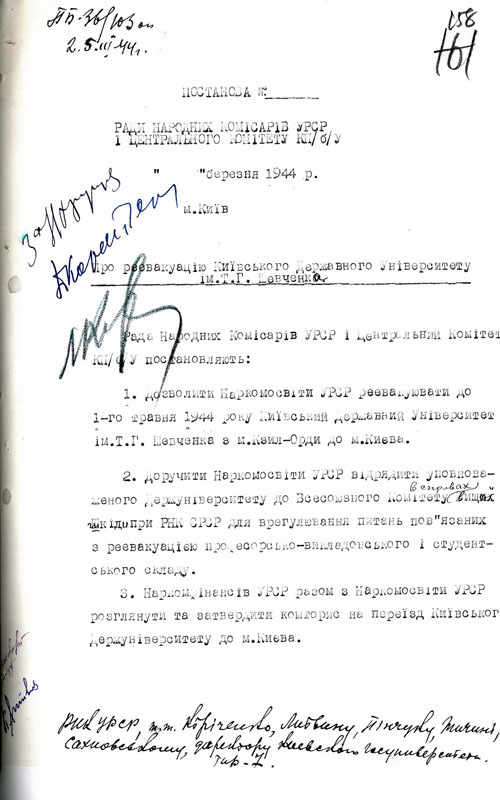 ПБ-36/103 оп
25.III.44г.
158
161
ПОСТАНОВА №
РАДИ НАРОДНИХ КОМІСАРІВ УРСР
І ЦЕНТРАЛЬНОГО КОМІТЕТУ КП/б/У
" "березня 1944 р.
м.Київ
Про реевакуацію Київського Державного Університету
ім.Т.Г. Шевченка
Рада Народних Комісарів УРСР і Центральний Комітет
КП/б/У постановляють:
1. Дозволити Наркомосвіти УРСР реевакуювати до
1-го травня 1944 року Київський Державний Університет
ім.Т.Г. Шевченка з м.Кзил-Орди до м.Києва.
2. Доручити Наркомосвіти УРСР відрядити уповнова-
женого Держуніверситету до Всесоюзного Комітету в справах вищих
шкіл при РНК СРСР для врегулювання питань пов"язаних
з реевакуацією професорсько-викладовського і студент-
ського складу.
3. Наркомфінансів УРСР разом з Наркомосвіти УРСР
розглянути та затвердити кошторис на переїзд Київського
Держуніверситету до м.Києва.
РНК УРСР, т.т. Кириченко, Литвину, Пінчуку, Тичині,
Сахновському, директору Киевского госуниверситета.
тир-7.